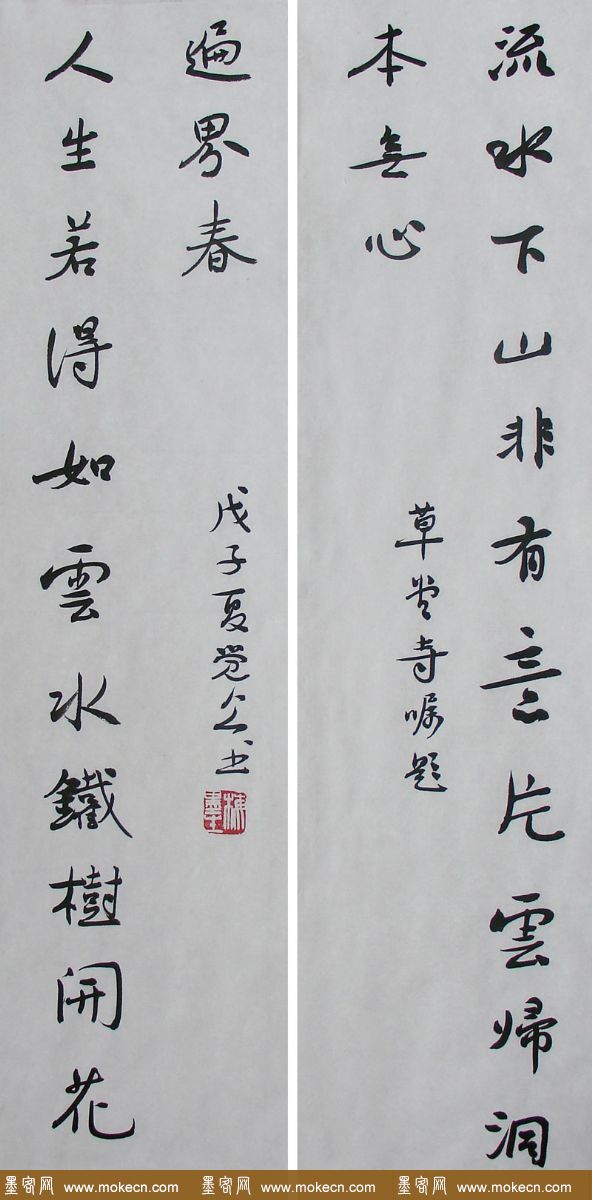 流水下山非有意片雲歸洞
本無心
草堂寺嘱題
人生若得如雲水鐵樹開花
遍界春
戊子夏觉书
墨客网 www.mokecn.com 墨客网 www.mokecn.com 墨客网 www.mokecn.com